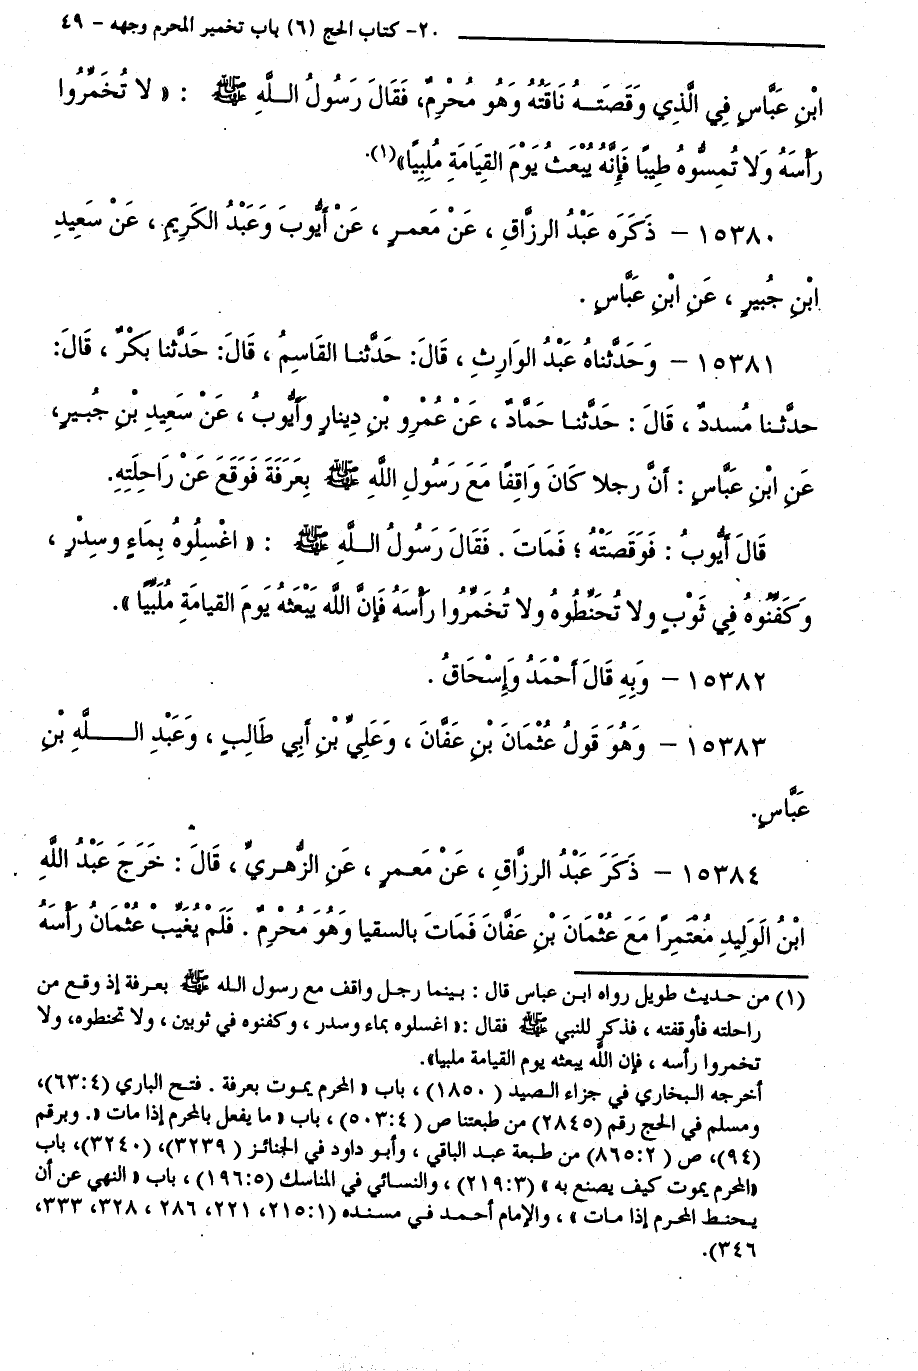 ٢٠- كتاب الحج (٦) باب تخمير المحرم وجهه - ٤٩
ابْنِ عَبَّاسٍ فِي الَّذِي وَقَصَتْهُ نَاقَتُهُ وَهُوَ مُحْرِمٌ، فَقَالَ رَسُولُ اللَّهِ ﷺ : « لا تُخَمِّرُوا
رَأْسَهُ وَلا تُمِسُّوهُ طِيبًا فَإِنَّهُ يُبْعَثُ يَوْمَ القِيَامَةِ مُلبِيًا»(١).
١٥٣٨٠ – ذَكَرَه عَبْدُ الرزَّاقِ ، عَنْ مَعمرٍ ، عَنْ أَيُّوبَ وَعَبْدُ الكَرِيمِ ، عَنْ سَعِيدِ
ابْنِ جُبيرٍ ، عَنِ ابْنِ عَبَّاسٍ .
١٥٣٨١ – وَحَدَّثناهُ عَبْدُ الوَارِثِ ، قَالَ: حَدَّثنا القَاسِمُ ، قَالَ: حَدَّثنا بَكْرٌ ، قَالَ:
حدَّثنا مُسددٌ ، قَالَ : حَدَّثنا حَمَّادٌ ، عَنْ عُمْرِو بْنِ دِينارٍ وَأَيُّوبُ ، عَنْ سَعِيدِ بْنِ جُبيرٍ،
عَنِ ابْنِ عَبَّاسٍ : أَنَّ رجلا كَانَ وَاقِفًا مَعَ رَسُولِ اللَّهِ ﷺ بِعَرَفَةَ فَوَقَعَ عَنْ رَاحِلَتِهِ.
قَالَ أَيُّوبُ : فَوَقَصَتْهُ ؛ فَمَاتَ . فَقَالَ رَسُولُ اللَّهِ ﷺ : « اغْسِلُوهُ بِمَاءٍ وسِدْرٍ ،
وَكَفِّنُوهُ فِي ثَوْبٍ ولا تُحَنِّطُوهُ ولا تُخَمِّرُوا رأْسَهُ فَإِنَّ اللَّه يَبْعَثه يَومَ القيامَةِ مُلَبِّيًا ».
١٥٣٨٢ – وَبِهِ قَالَ أَحْمَدُ وَإِسْحَاقُ .
١٥٣٨٣ – وَهُوَ قَولُ عُثْمَانَ بْنِ عَفَّانَ ، وَعَلِيِّ بْنِ أَبِي طَالِبٍ ، وَعَبْدِ اللَّهِ بْنِ
عَبَّاسٍ.
١٥٣٨٤ – ذَكَرَ عَبْدُ الرزَّاقِ ، عَنْ مَعمرٍ ، عَنِ الزُّهريِّ ، قَالَ : خَرَجَ عَبْدُ اللَّهِ
ابْنُ الوَلِيدِ مُعْتَمِرًا مَعَ عُثْمَانَ بْنِ عَفَّانَ فَمَاتَ بالسقيا وَهُوَ مُحْرِمٌ . فَلَمْ يُغَيِّبْ عُثْمَانُ رَأْسَهُ
(١) من حديث طويل رواه ابن عباس قال : بينما رجل واقف مع رسول الله ﷺ بعرفة إذ وقع من
راحلته فأوقفته ، فذكر للنبي ﷺ فقال :« اغسلوه بماء وسدر ، وكفنوه في ثوبين ، ولا تحنطوه، ولا
تخمروا رأسه ، فإن الله يبعثه يوم القيامة ملبيا».
أخرجه البخاري في جزاء الصيد ( ١٨٥٠) ، باب « المحرم يموت بعرفة . فتح الباري (٦٣:٤)،
ومسلم في الحج رقم (٢٨٤٥) من طبعتنا ص ( ٥٠٣:٤) ، باب « ما يفعل بالمحرم إذا مات «. وبرقم
(٩٤)، ص ( ٨٦٥:٢) من طبعة عبد الباقي ، وأبو داود في الجنائز ( ٣٢٣٩)، (٣٢٤٠)، باب
«المحرم يموت كيف يصنع به » (٢١٩:٣) ، والنسائي في المناسك (١٩٦:٥) ، باب « النهي عن أن
يحنط المحرم إذا مات » ، والإمام أحمد في مسنده (٢١٥:١، ٢٢١، ٢٨٦ ، ٣٢٨، ٣٣٣،
٣٤٦).